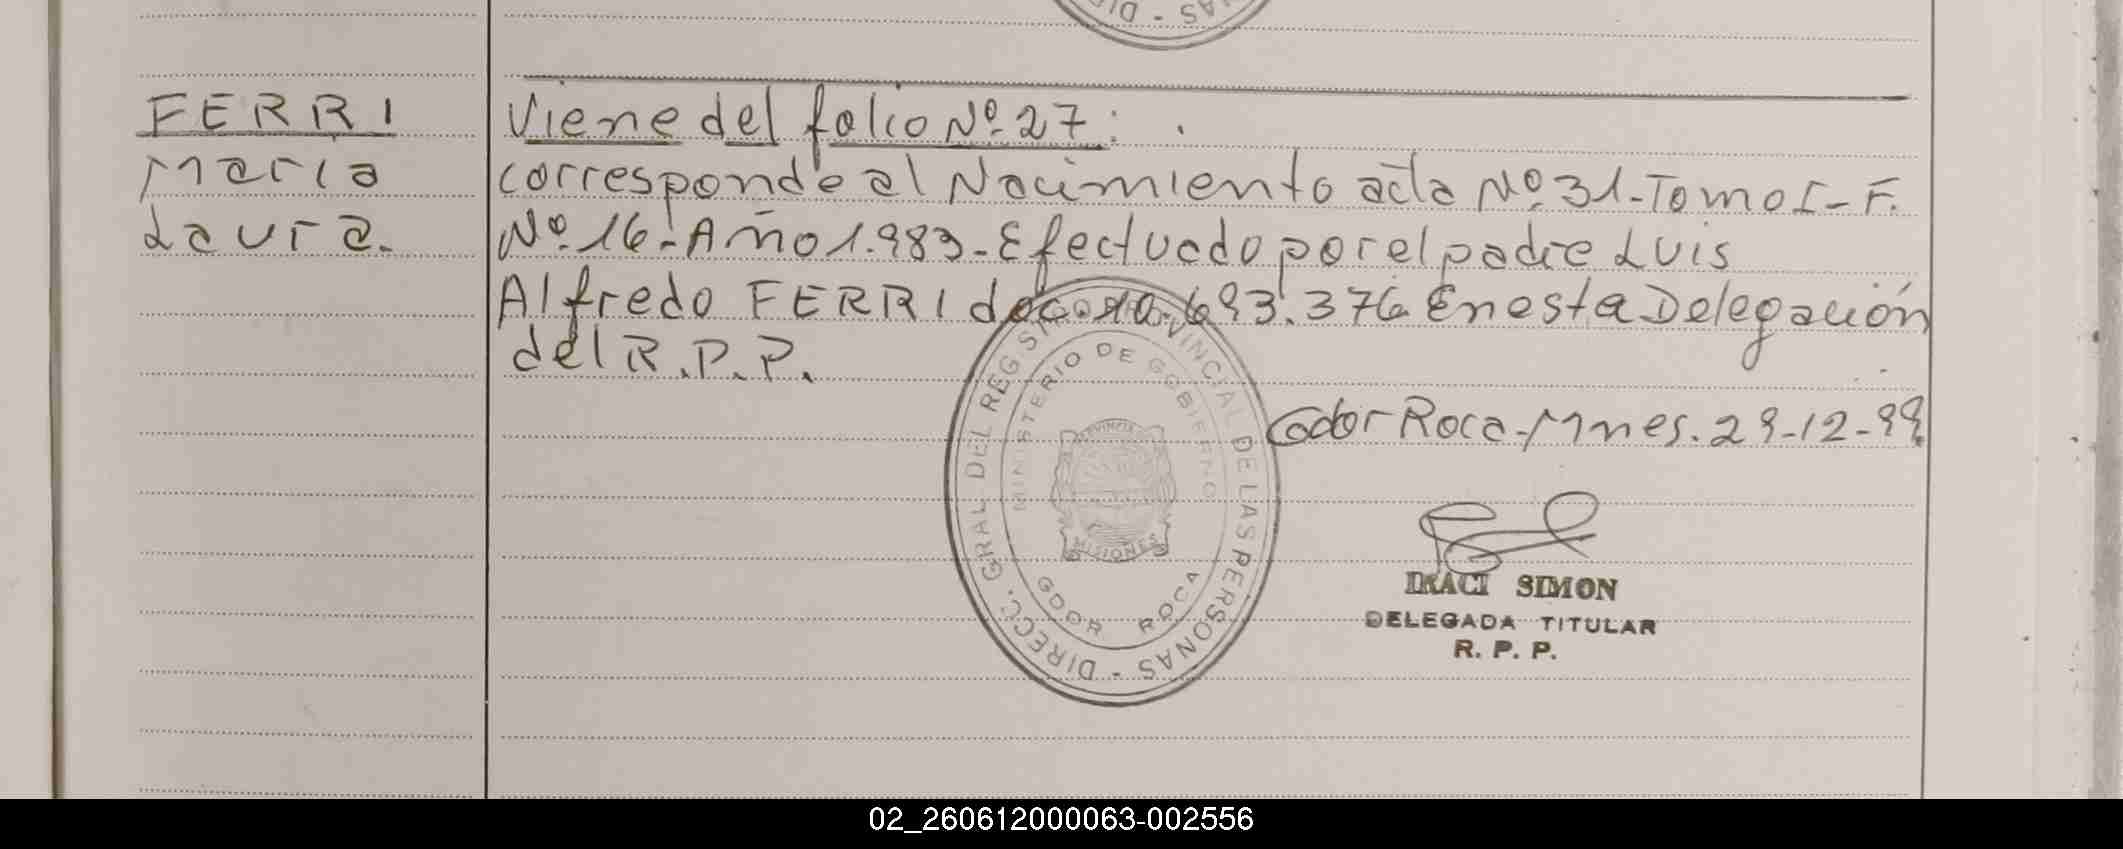 NAS - DI
FERRI
Maria
Laura.
Viene del folio Nº 27:
corresponde al Nacimiento acta Nº 31-Tomo I-F.
Nº 16-Año 1.983-Efectuado por el padre Luis
Alfredo FERRI doc. 10.693.376 En esta Delegación
del R.P.P.
Gdor Roca-Mnes. 29-12-99
DIRECC. GRAL DEL REGISTRO PROVINCIAL DE LAS PERSONAS -
MINISTERIO DE GOBIERNO
PROVINCIA
MISIONES
GDOR ROCA
IRACI SIMON
DELEGADA TITULAR
R. P. P.
02_260612000063-002556